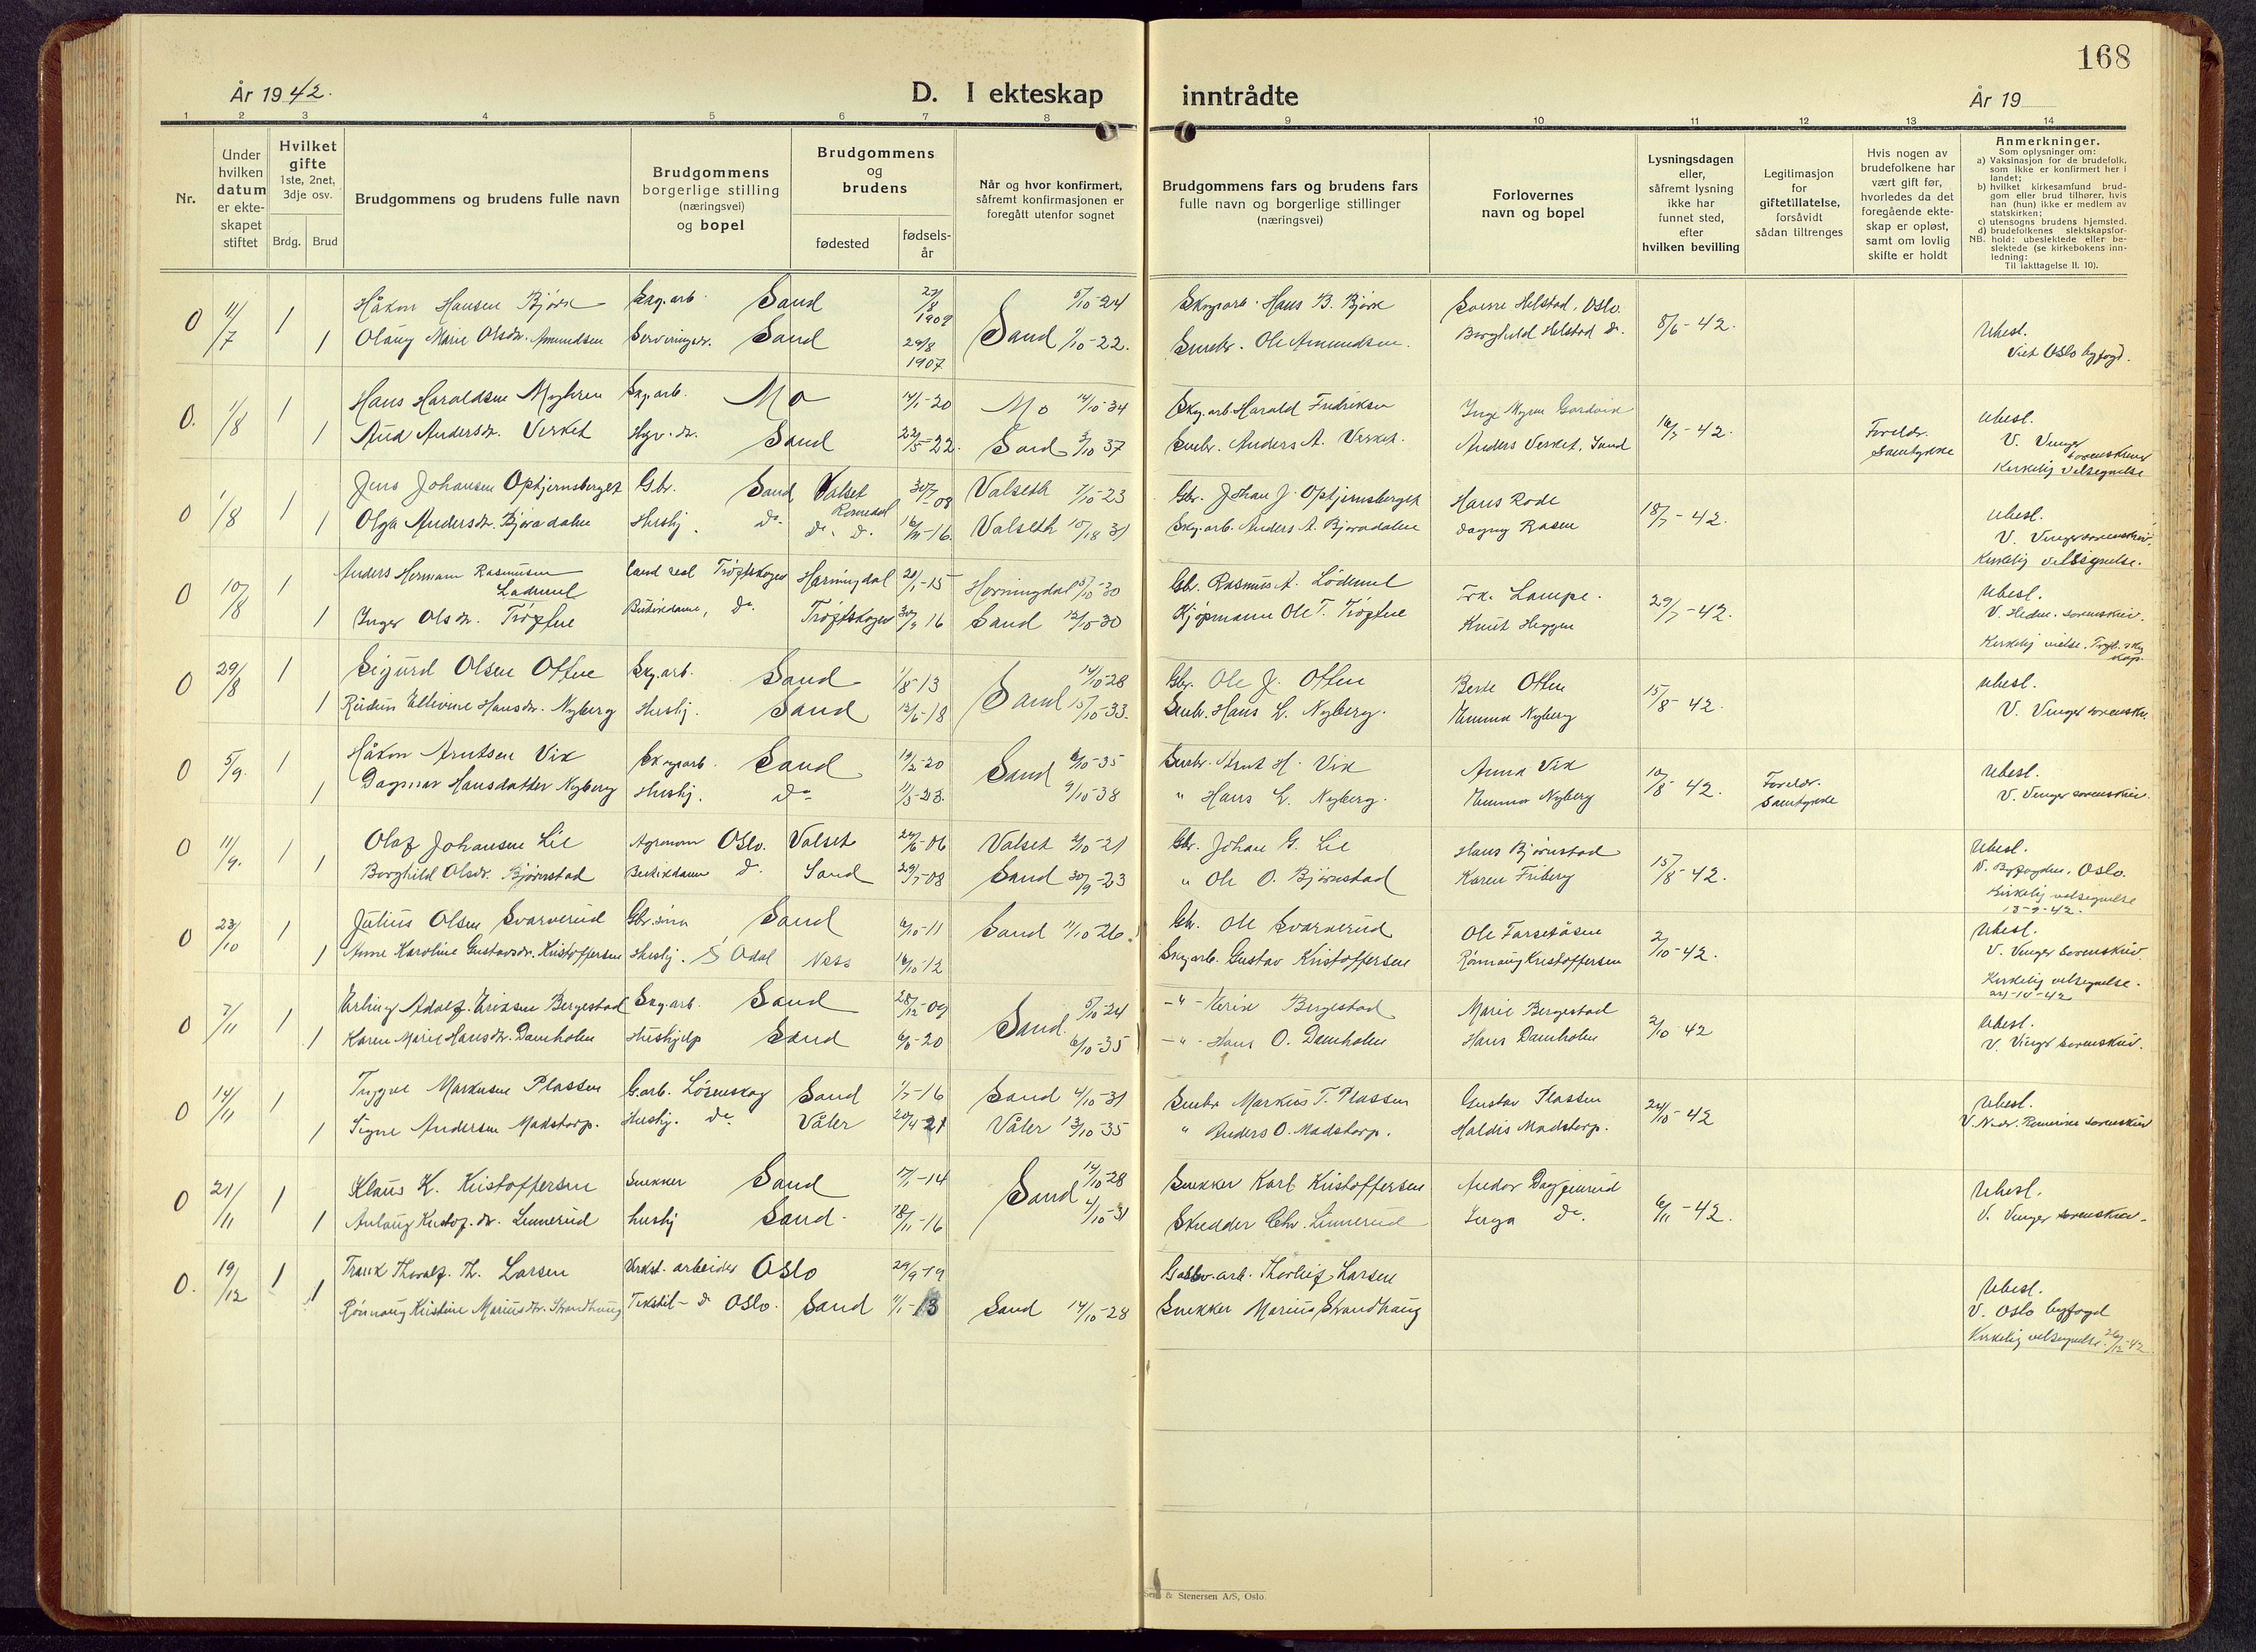 168
År 1942. D. I ekteskap inntrådte År 19
1 2 3 4 5 6 7 8 9 10 11 12 13 14
Nr.
Under hvilken datum er ekteskapet stiftet
Hvilket gifte 1ste, 2net, 3dje osv.
Brdg. Brud
Brudgommens og brudens fulle navn
Brudgommens borgerlige stilling (næringsvei) og bopel
Brudgommens og brudens
fødested fødsels-år
Når og hvor konfirmert, såfremt konfirmasjonen er foregått utenfor sognet
Brudgommens fars og brudens fars fulle navn og borgerlige stillinger (næringsvei)
Forlovernes navn og bopel
Lysningsdagen eller, såfremt lysning ikke har funnet sted, efter hvilken bevilling
Legitimasjon for giftetillatelse, forsåvidt sådan tiltrenges
Hvis nogen av brudefolkene har vært gift før, hvorledes da det foregående ekteskap er opløst, samt om lovlig skifte er holdt
Anmerkninger.
Som oplysninger om:
a) Vaksinasjon for de brudefolk, som ikke er konfirmert her i landet;
b) hvilket kirkesamfund brudgom eller brud tilhører, hvis han (hun) ikke er medlem av statskirken;
c) utensogns brudens hjemsted.
d) brudefolkenes slektskapsforhold: ubeslektede eller beslektede (se kirkebokens innledning:
NB.
Til iakttagelse II. 10).
0 11/7 1 Håkon Hansen Bjørk Skg.arb. Sand 27/8 1909 Sand 5/10-24 Skogsarb. Hans B. Bjørk Sverre Helstad, Oslo 8/6-42.
1 Olaug Marie Olsdr. Amundsen Serveringsdr. Sand 29/8 1907 1/10-22. Småbr. Ole Amundsen. Borghild Helstad do. Ubesl.
Viet Oslo byfogd.
0. 1/8 1 Hans Haraldsen Myhren Skg.arb. Mo 14/1-20 Mo 14/10-34 Skg.arb. Harald Fredriksen Inge Myren Gardvik 16/7-42. Ubesl.
1 Aud Andersdr. Verket Sand 22/5-22. Sand 3/10 37 Småbr. Anders A. Verket. Anders Verket, Sand Foreldr. Samtykke V. Vinger sorenskriver
Kirkelig Velsignelse
0 1/8 1 Jens Johansen Optjernsberget Gbr. Sand Valset Romedal 30/7-08 Valseth 7/10-23 Gbr. Johan J. Optjernsberget Hans Rode 18/7-42. Ubesl.
1 Olga Andersdr. Bjøradalen Hushj. do. do. do. 16/11-16. Valseth 15/18 31 Skg.arb. Anders A. Bjøradalen Dagny Rasen V. Vinger sorenskriv.
Kirkelig velsignelse.
0 10/8 1 Anders Hermann Rasmussen Lødemel Trøftskogen Horningdal 28/1-15 Horningdal 5/10-30 Gbr. Rasmus A. Lødemel Lampe. 29/7-42. Ubesl.
1 Inger Olsdr. Trøften Butikkdame, do. Trøftskogen 30/9 16 Sand 12/10-30 Kjøpmann Ole T. Trøften Knut Heggen V. Hedm. sorenskriv.
Kirkelig vielse. Trøft.skg. kap.
0 29/8 1 Sigurd Olsen Otten Skg.arb. Sand 1/8-13 Sand 14/10-28 Gbr. Ole J. Otten Berte Otten 15/8-42. Ubesl.
1 Reidun Ellevine Hansdr. Nyberg Hushj. Sand 12/6-18 15/10-33. Småbr. Hans L. Nyberg. Emma Nyberg V. Vinger sorenskr.
0 5/9. 1 Håkon Arntsen Vik Skogsarb. Sand 19/2-20 Sand 6/10-35 Småbr. Arnt H. Vik Anna Vik 10/8 42. Foreldr. Samtykke Ubesl.
1 Dagmar Hansdatter Nyberg Hushj. do 11/5-23. 9/10-38 " Hans L. Nyberg. Emma Nyberg V. Vinger sorenskriv.
0 11/9. 1 Olaf Johansen Lie Agronom Oslo. Valset 24/6-06 Valset 2/10-21 Gbr. Johan G. Lie Hans Bjørnstad 15/8-42. Ubesl.
1 Borghild Olsdr. Bjørnstad Butikkdame do. Sand 29/7-08 Sand 30/9-23 " Ole O. Bjørnstad Karen Friberg V. Byfogden, Oslo.
Kirkelig velsignelse
13-9-42.
0 23/10 1 Julius Olsen Svarverud Gbr.sønn Sand 6/10-11 Sand 11/10-26. Gbr. Ole Svarverud Ole Farsetåsen 2/10-42. Ubesl.
1 Anne Karoline Gustavsdr. Kristoffersen Hushj. S Odal Nes 16/10-12 Skg.arb. Gustav Kristoffersen Rønnaug Kristoffersen V. Vinger Sorenskriv
Kirkelig velsignelse.
0 7/11 1 Erling Adolf Eriksen Bergestad Skg.arb. Sand 28/12-09 Sand. 5/10-24 -"- Eerik Bergestad Marie Bergestad 2/10 42 Ubesl.
1 Karen Marie Hansdr. Damholen Hushjelp Sand 6/6-20 6/10-35 -"- Hans O. Damholen Hans Damholen V. Vinger Sorenskriv.
0 14/11 1 Trygve Markusen Plassen G.arb. Lørenskog Sand 1/7-16 Sand 4/10-31 Småbr Markus T. Plassen Gustav Plassen 24/10-42 Ubesl.
1 Signe Andersen Madstorp. Hushj. do Våler 20/4 21 Våler 13/10-35 " Anders O. Madstorp. Haldis Madstorp. V. Nedr. Romerikes sorenskriv
0 21/11 1 Klaus K. Kristoffersen Snekker Sand 17/1-14 Sand 14/10-28 Snekker Karl Kristoffersen Andor Daggenrud 6/11-42. Ubesl.
1 Anlaug Kristof.dr. Linnerud hushj Sand. 18/11-16 4/10-31 Skredder Chr. Linnerud Inga do. V. Vinger sorenskriv.
0. 19/12 1 Frank Thoralf. Th. Larsen Verkst. arbeider Oslo 29/9-19 Gassv.arb. Thorleif Larsen Ubesl.
1 Rønnaug Kristine Mariusdr. Strandhaug Tekstil- do Oslo. Sand 1/1-13 Sand 14/10-28 Snekker Marius Strandhaug V. Oslo byfogd
Kirkelig velsignelse. 26/12-42
& Stenersen A/S, Oslo.